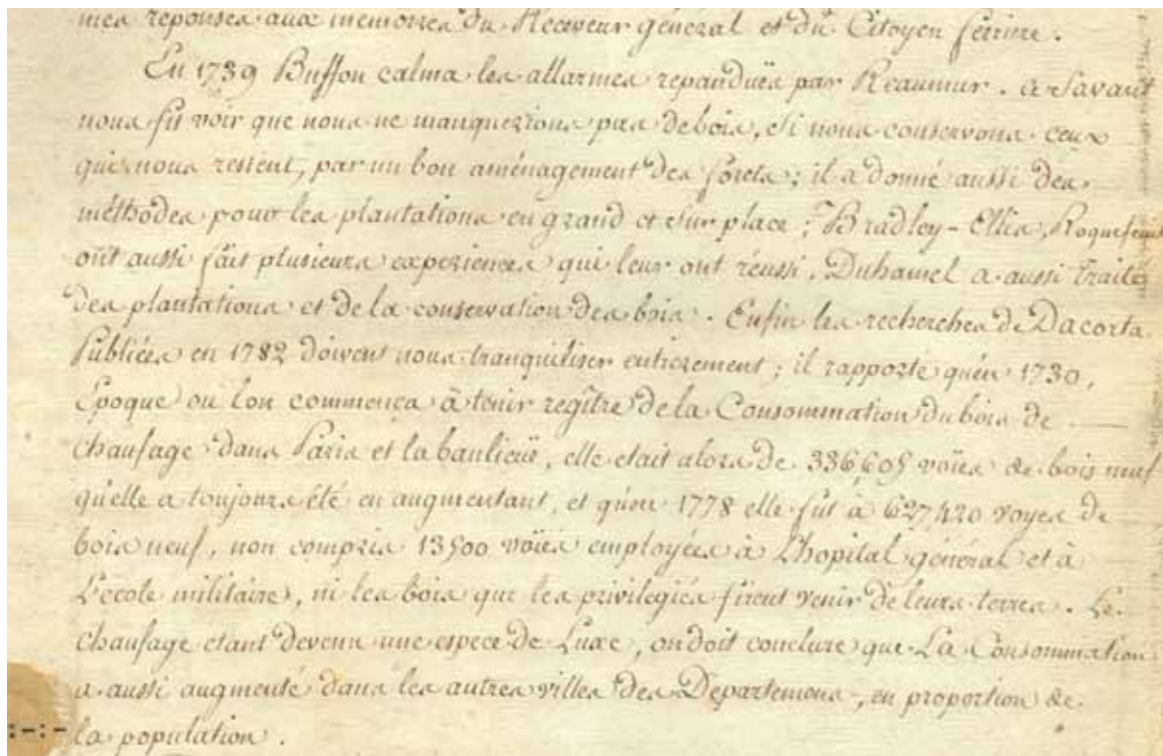 mes reponses aux memoires du Receveur général et du Citoyen ferrire.
En 1739 Buffon calma les allarmes repanduës par Reaumur. ce Savant
nous fit voir que nous ne manquerions pas de bois, si nous conservons ceux
qui nous restent, par un bon aménagement des forets; il a donné aussi des
méthodes pour les plantations en grand et sur place; Bradley-Ellis, Roquefeuil
ont aussi fait plusieurs experiences qui leur ont réussi. Duhamel a aussi traité
des plantations et de la conservation des bois. Enfin les recherches de Dacosta
Publiées en 1782 doivent nous tranquiliser entierement; il rapporte qu'en 1730,
Epoque ou l'on commença à tenir regître de la Consommation du bois de
chaufage dans Paris et la banlieüe, elle etait alors de 336,605 voïes de bois neuf
qu'elle a toujours été en augmentant, et qu'en 1778 elle fut à 627,420 voyes de
bois neuf, non compris 13500 voïes employées à L'hopital général et à
L'école militaire, ni les bois que les privilegiés firent venir de leurs terres. Le
chaufage etant devenu une espece de Luxe, on doit conclure que La Consommation
a aussi augmenté dans les autres villes des Departemens, en proportion de
la population.